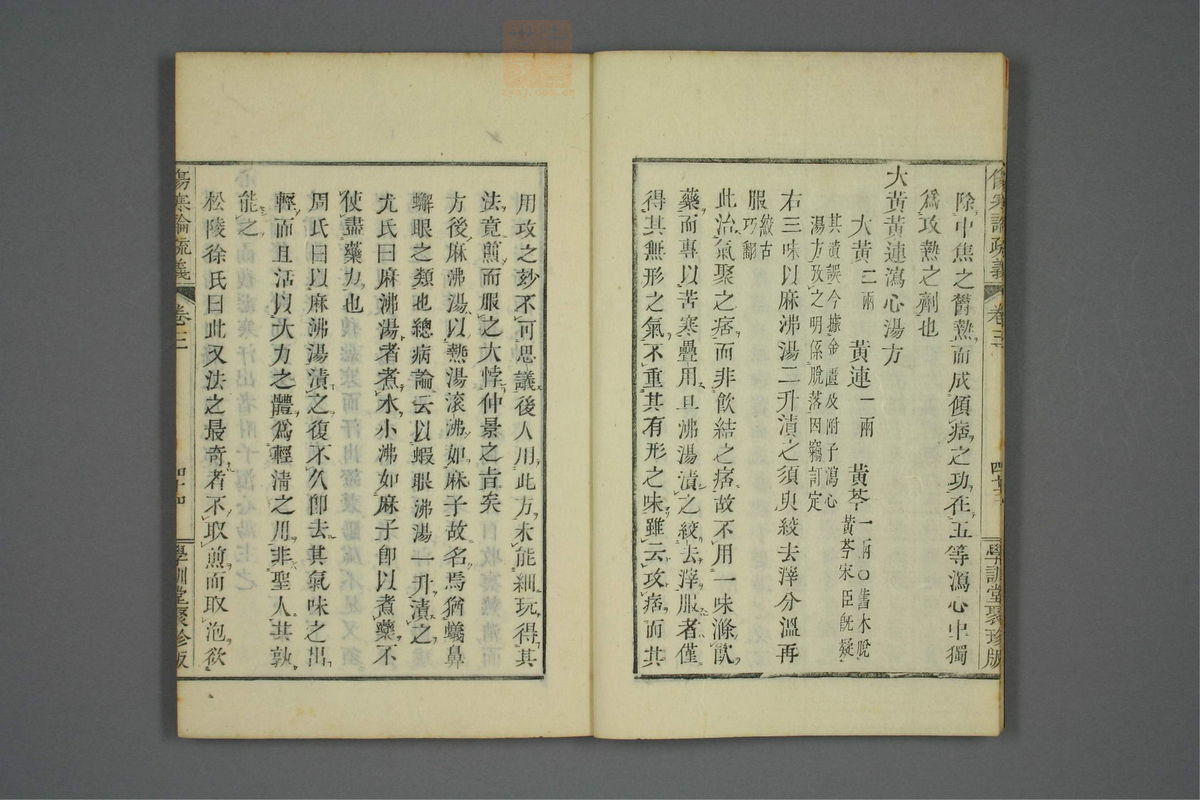 傷寒論疏義 卷三 四十三 學訓堂聚珍版
除中焦之鬱熱而成傾痞之功在五等瀉心中獨
爲攻熱之劑也
大黃黃連瀉心湯方
大黃二兩 黃連一兩 黃芩一兩○舊本脫
黃芩宋臣旣疑
其遺誤今據金匱及附子瀉心
湯方攷之明係脫落因竊訂定
右三味以麻沸湯二升漬之須臾絞去滓分溫再
服絞古
巧翻
此治氣聚之痞而非飮結之痞故不用一味滌飮
藥而專以苦寒疊用且沸湯漬之絞去滓服者僅
得其無形之氣不重其有形之味雖云攻痞而其
用攻之妙不可思議後人用此方未能細玩得其
法竟煎而服之大悖仲景之旨矣
方後麻沸湯以熱湯滾沸如麻子故名焉猶蟻鼻
蠏眼之類也總病論云以蝦眼沸湯一升漬之
尤氏曰麻沸湯者煮水小沸如麻子卽以煮藥不
使盡藥力也
周氏曰以麻沸湯漬之復不久卽去其氣味之出
輕而且活以大力之體爲輕淸之用非聖人其孰
能之
松陵徐氏曰此又法之最奇者不取煎而取泡欲
傷寒論疏義 卷三 四十四 學訓堂聚珍版